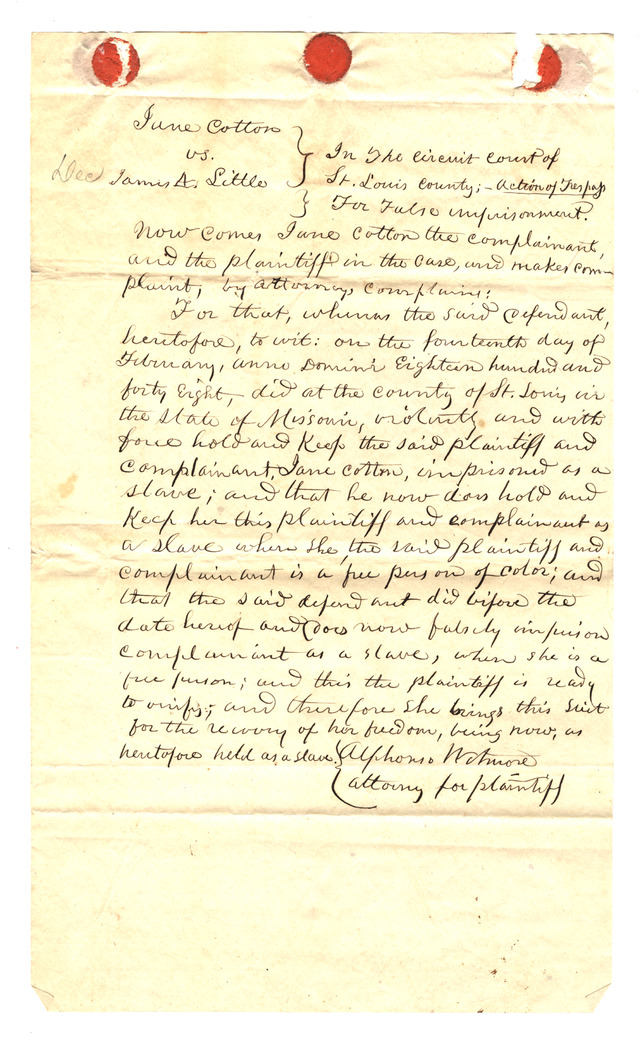 Jane Cotton
vs.
Dec James A. Little
In The Circuit Court of
St. Louis County; - Action of Trespass
For False imprisonment.
Now comes Jane Cotton the complainant,
and the plaintiff in the case, and makes com-
plaint, by attorney, complains:
For that, whereas the said defendant,
heretofore, to wit: on the fourteenth day of
February, anno Domini Eighteen hundred and
forty Eight, did at the county of St. Louis in
the State of Missouri, violently and with
force hold and keep the said plaintiff and
complainant, Jane Cotton, imprisoned as a
slave; and that he now does hold and
keep her this plaintiff and complainant as
a slave when she, the said plaintiff and
complainant is a free person of color; and
that the said defendant did before the
date hereof and does now falsely imprison
complainant as a slave, when she is a
free person; and this the plaintiff is ready
to verify; and therefore she brings this suit
for the recovery of her freedom, being now, as
heretofore held as a slave.
Alphonso Wetmore
attorny for plaintiff